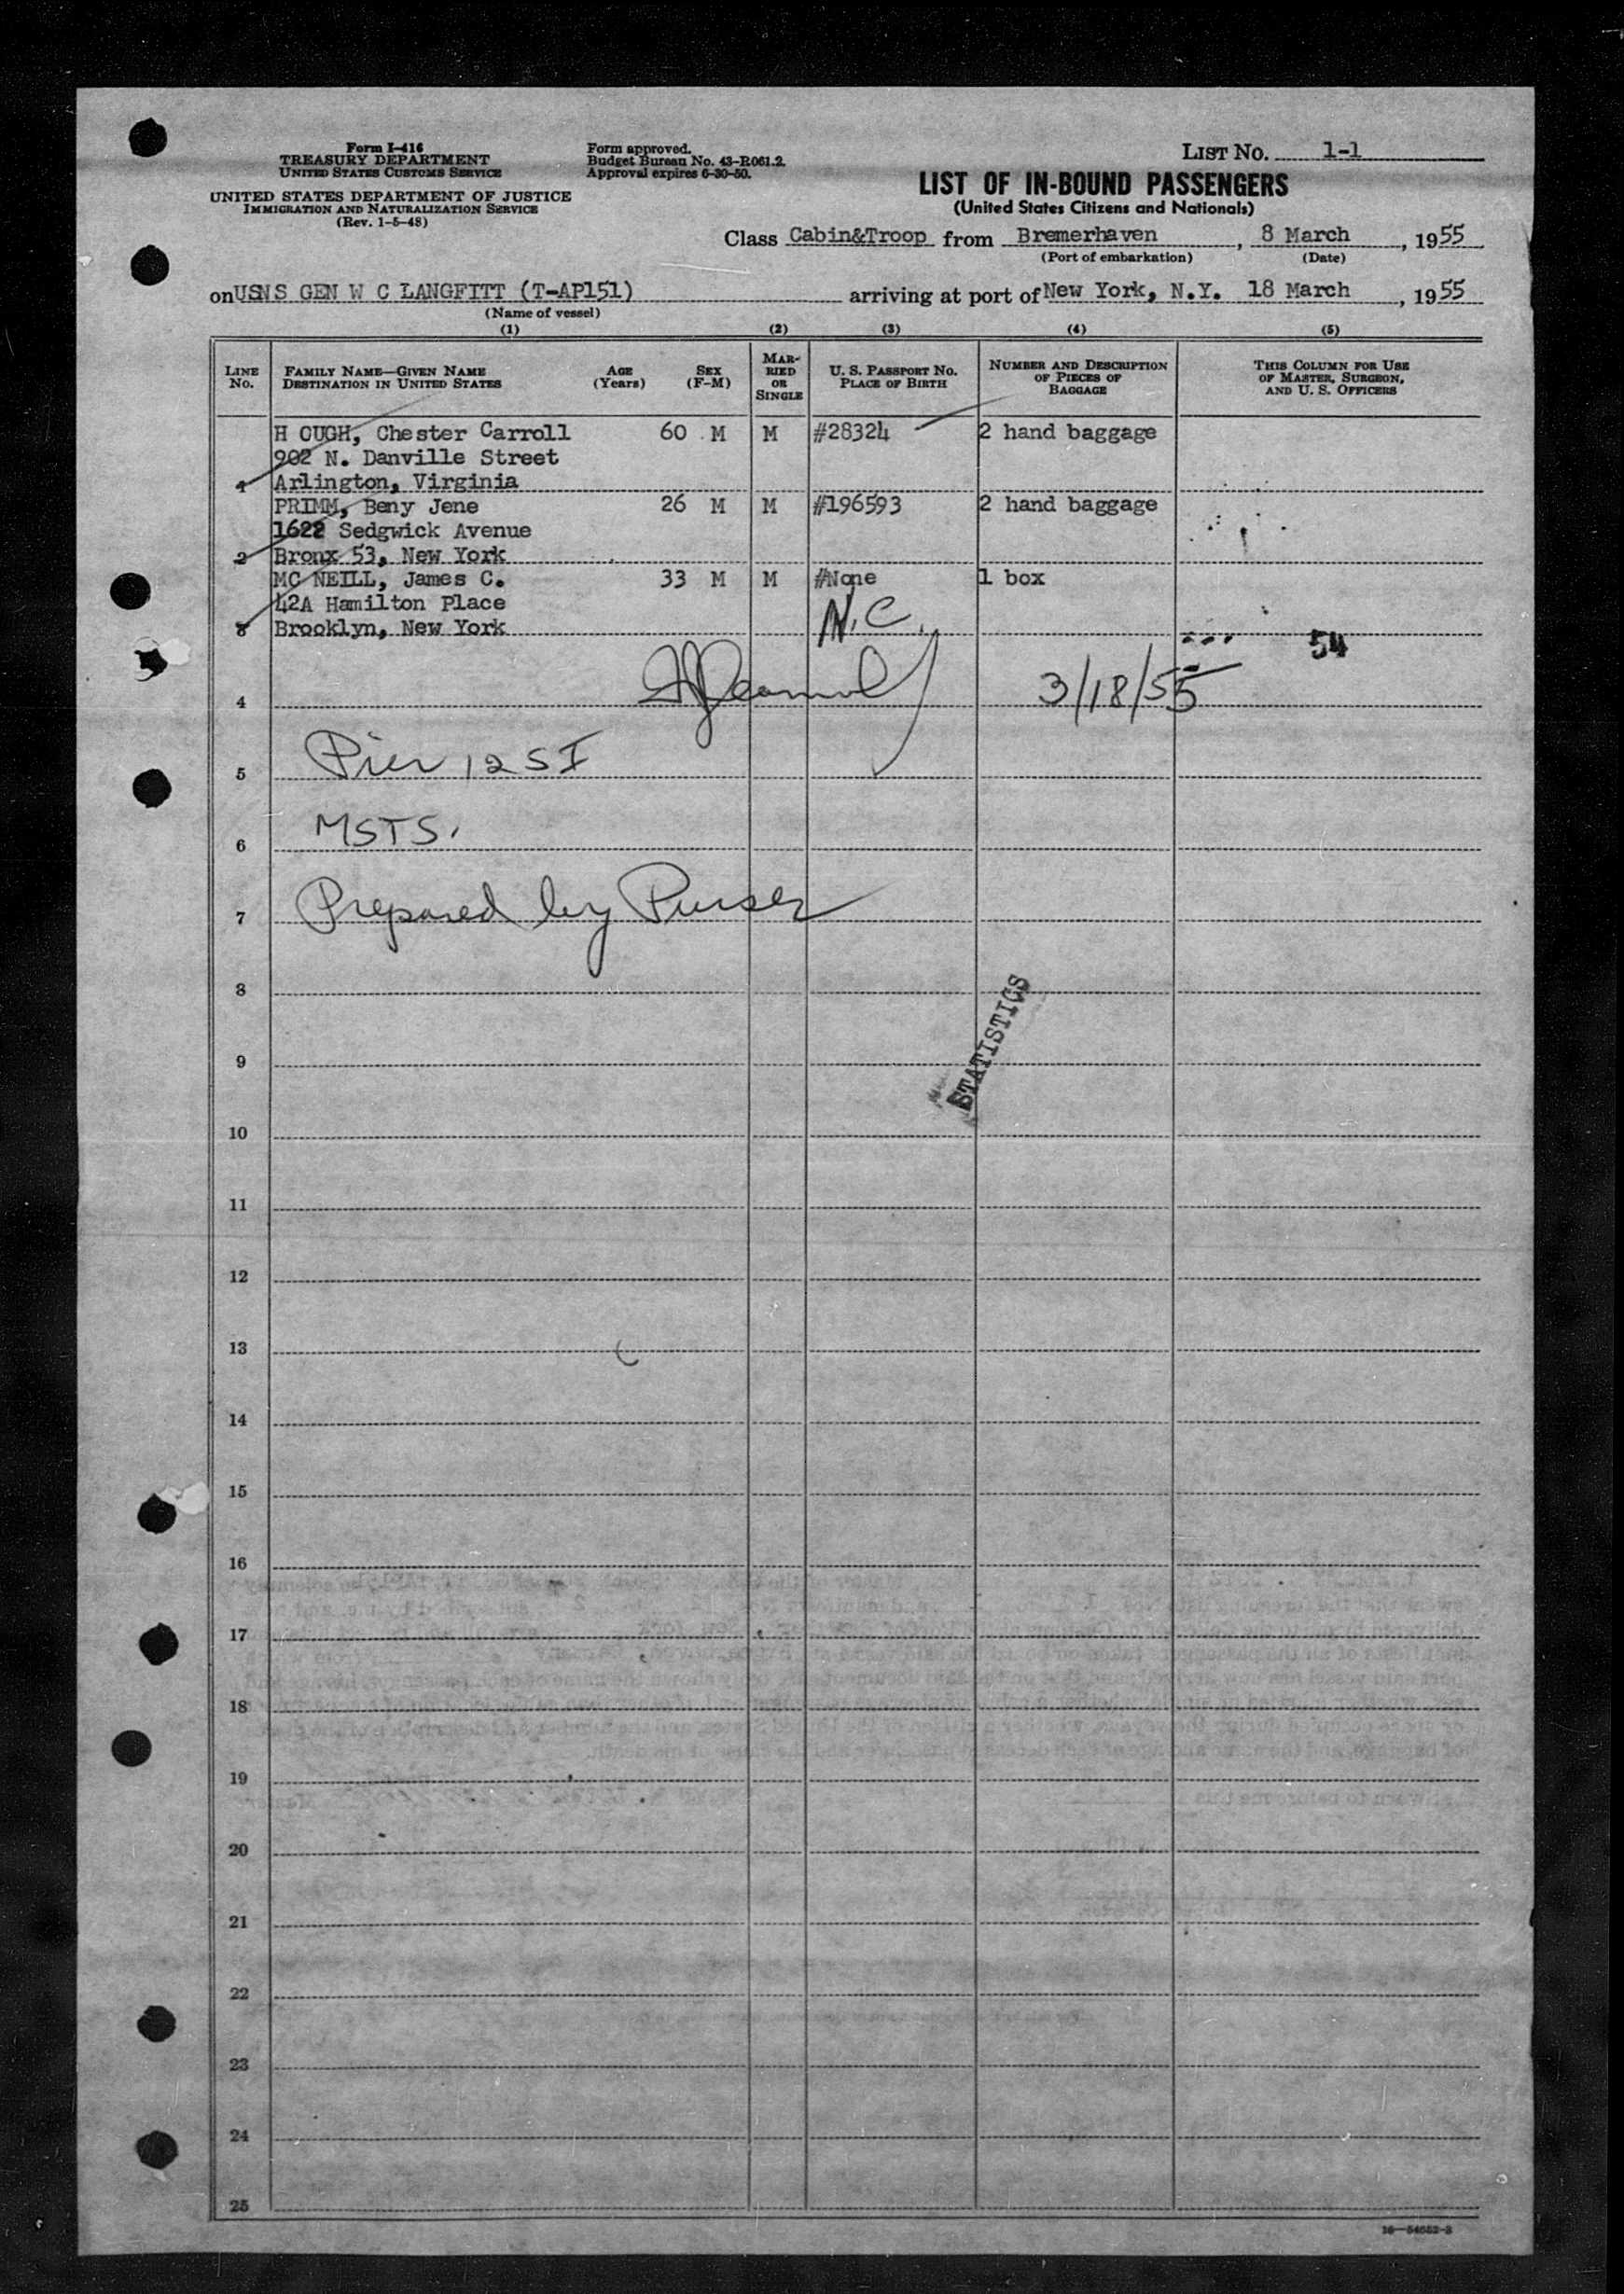 Form I-416
TREASURY DEPARTMENT
UNITED STATES CUSTOMS SERVICE
UNITED STATES DEPARTMENT OF JUSTICE
IMMIGRATION AND NATURALIZATION SERVICE
(Rev. 1-5-48)
Form approved.
Budget Bureau No. 43-R061.2.
Approval expires 6-30-50.
LIST NO. 1-1
LIST OF IN-BOUND PASSENGERS
(United States Citizens and Nationals)
Class Cabin&Troop from Bremerhaven, 8 March, 1955
(Port of embarkation) (Date)
on USNS GEN W C LANGFITT (T-AP151) arriving at port of New York, N.Y. 18 March, 1955
(Name of vessel)
(1) (2) (3) (4) (5)
LINE NO.
FAMILY NAME—GIVEN NAME
DESTINATION IN UNITED STATES
AGE (Years)
SEX (F-M)
MARRIED OR SINGLE
U. S. PASSPORT NO.
PLACE OF BIRTH
NUMBER AND DESCRIPTION
OF PIECES OF
BAGGAGE
THIS COLUMN FOR USE
OF MASTER, SURGEON,
AND U. S. OFFICERS
H OUGH, Chester Carroll 60 M M #28324 2 hand baggage
902 N. Danville Street
1 Arlington, Virginia
PRIMM, Beny Jene 26 M M #196593 2 hand baggage
1622 Sedgwick Avenue
2 Bronx 53, New York
MC NEILL, James C. 33 M M #None 1 box
42A Hamilton Place N.C.
3 Brooklyn, New York
54
4 3/18/55
5 Pier 12 SI
6 MSTS.
7 Prepared by Purser
8
STATISTICS
9
10
11
12
13
14
15
16
17
18
19
20
21
22
23
24
25
16—54652-3